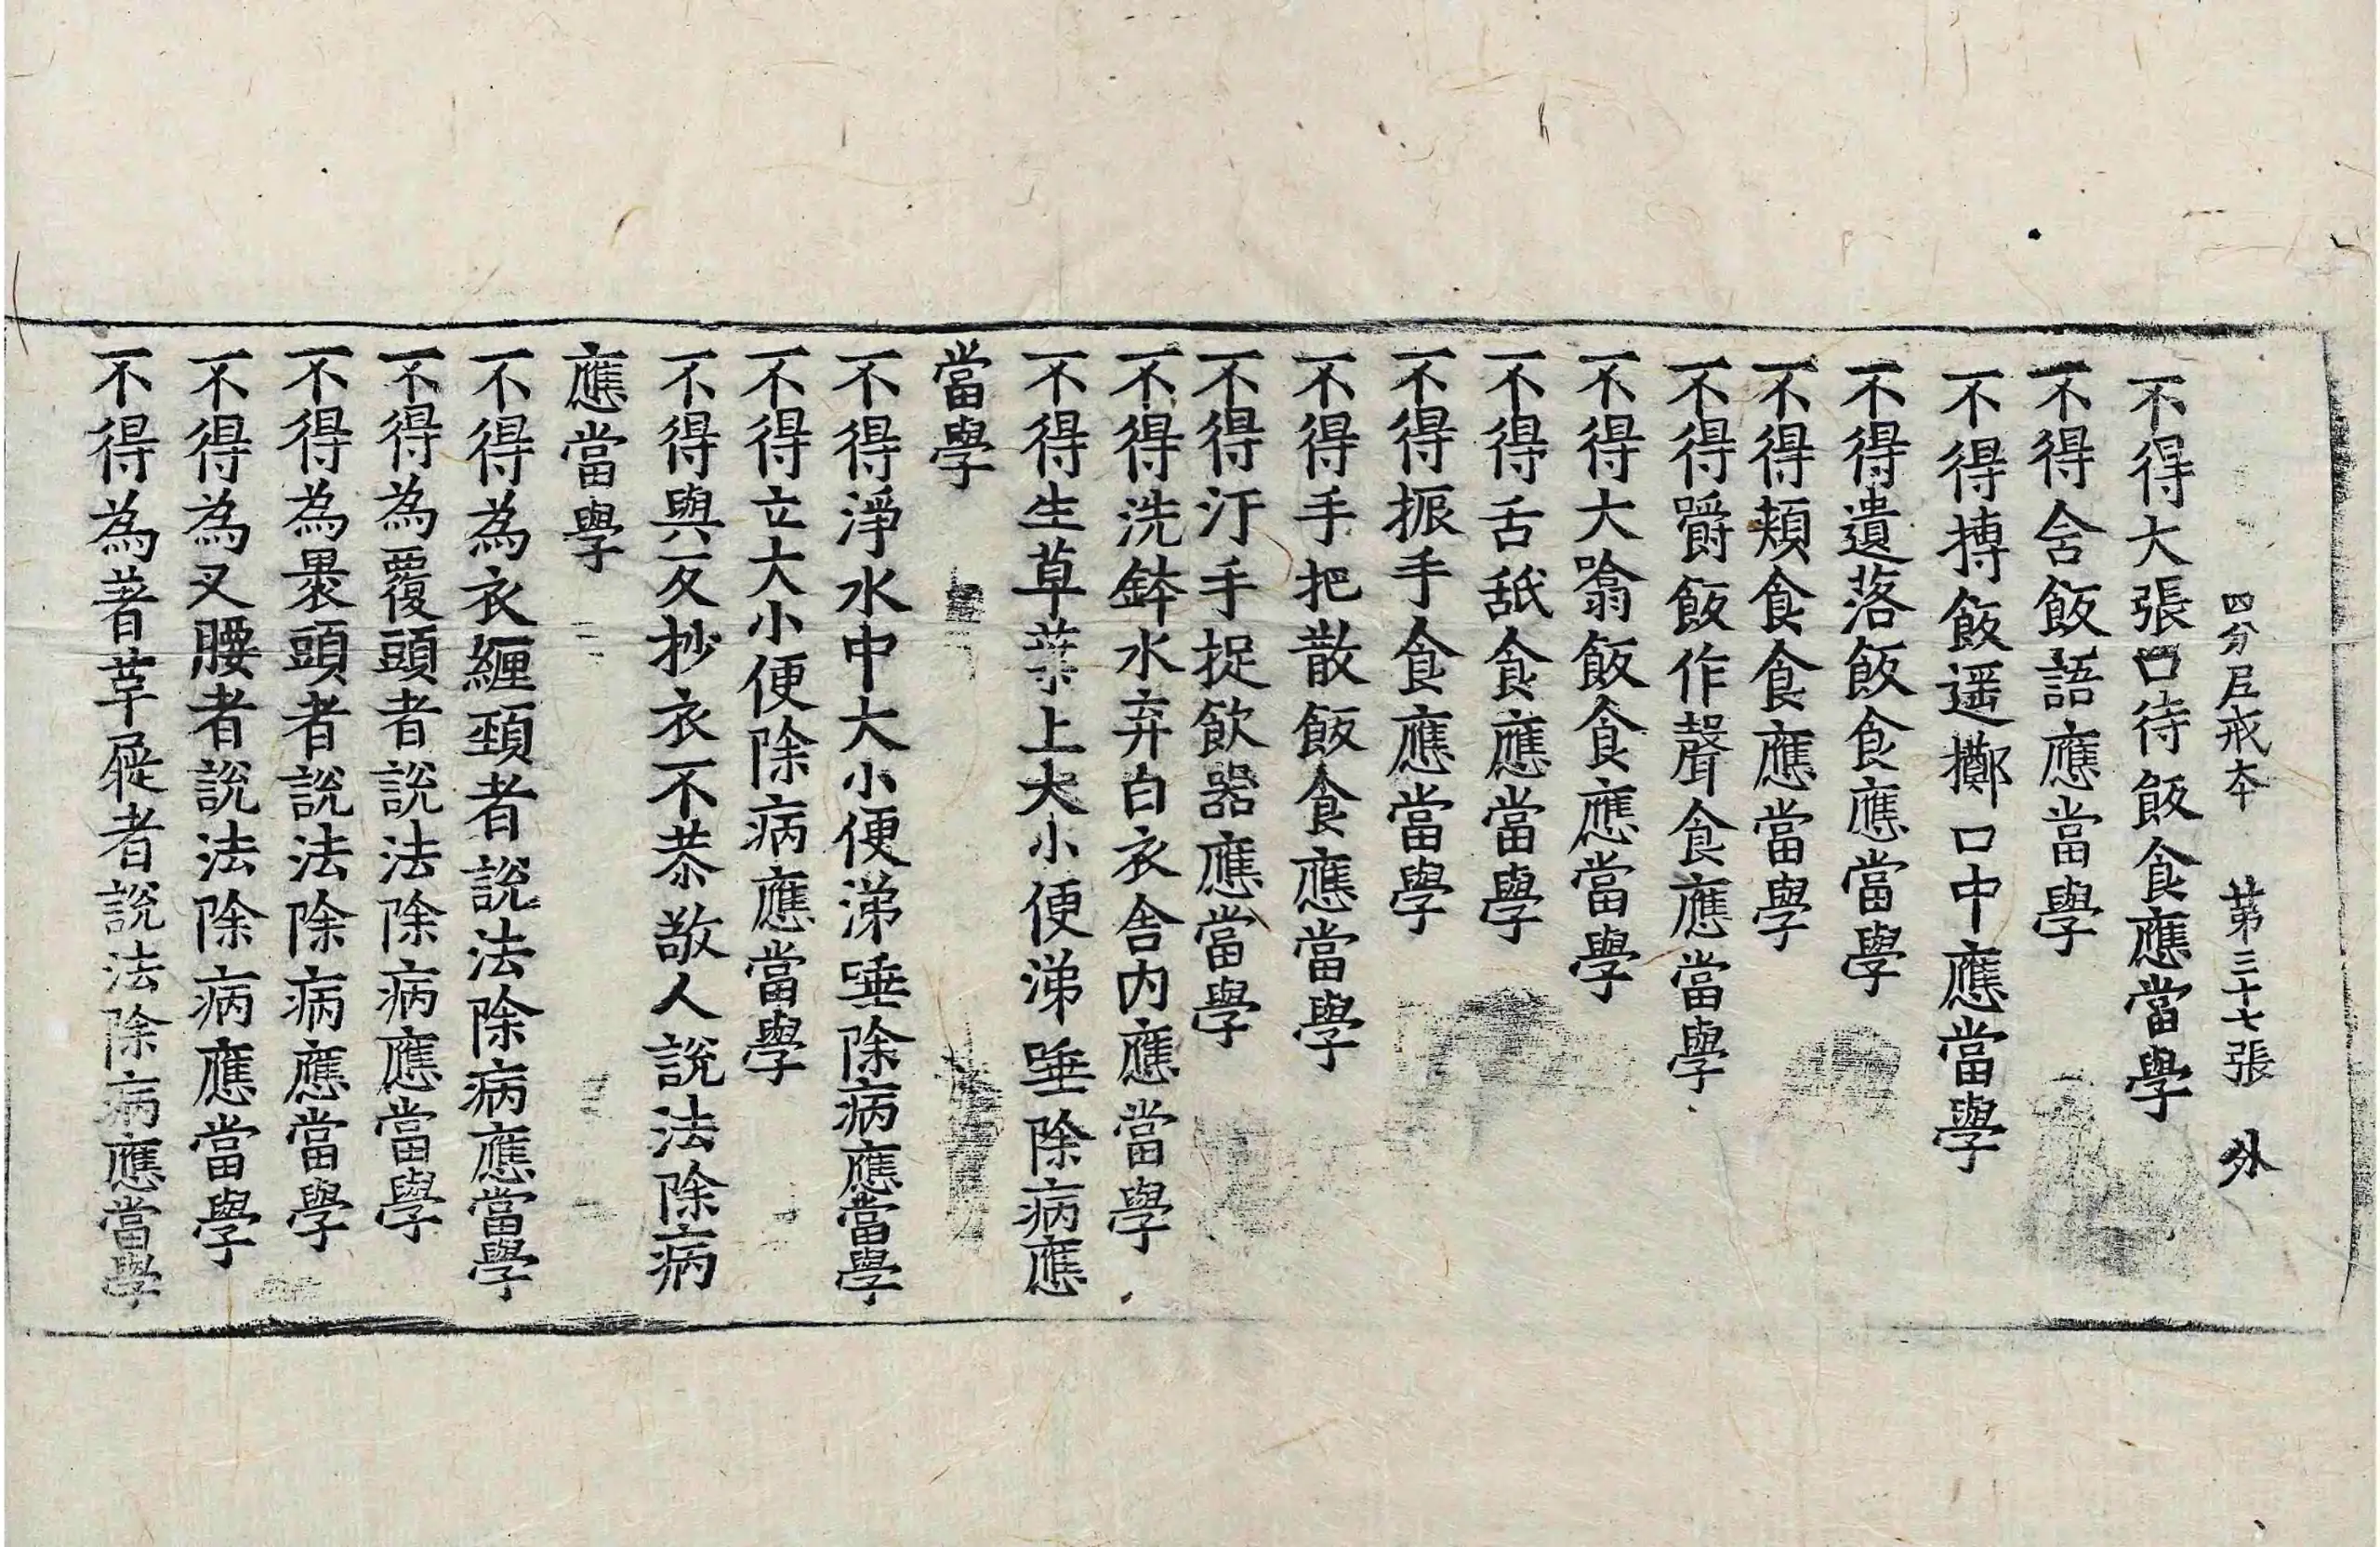 四分尼戒本　第三十七張　外
不得大張口待飯食應當學
不得含飯語應當學
不得摶飯遥擲口中應當學
不得遺落飯食應當學
不得頰食食應當學
不得嚼飯作聲食應當學
不得大噏飯食應當學
不得舌舐食應當學
不得振手食應當學
不得手把散飯食應當學
不得汙手捉飲器應當學
不得洗鉢水弃白衣舍内應當學
不得生草葉上大小便涕唾除病應
當學
不得淨水中大小便涕唾除病應當學
不得立大小便除病應當學
不得與反抄衣不恭敬人說法除病
應當學
不得為衣纏頸者說法除病應當學
不得為覆頭者說法除病應當學
不得為裹頭者說法除病應當學
不得為叉腰者說法除病應當學
不得為著革屣者說法除病應當學